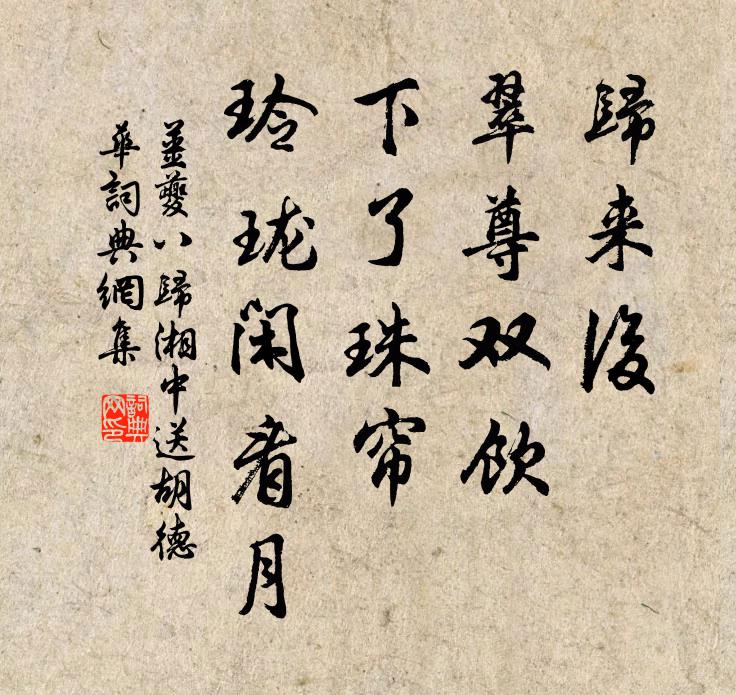 歸来後
翠尊双飲
下了珠帘
玲珑闲看月
姜夔八歸湘中送胡德
華詞典網集
詞典
网印